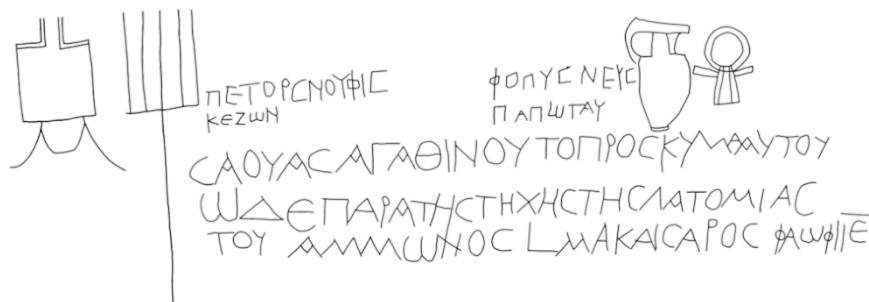 ΠΕΤΟΡСΝΟΥΦΙС
ΚΕΖωΝ
ΦΟΠΥСΝΕΥС
ΠΑΠωΤΑΥ
САΟΥΑСΑΓΑΘΙΝΟΥΤΟΠΡΟСΚΥΜΑΑΥΤΟΥ
ωΔΕΠΑΡΑΤΗСΤΗΧΗСΤΗСΛΑΤΟΜΙΑС
ΤΟΥΑΜΜωΝΟС LΜΑΚΑΙСΑΡΟС ΦΑωΦΙ ΙΕ